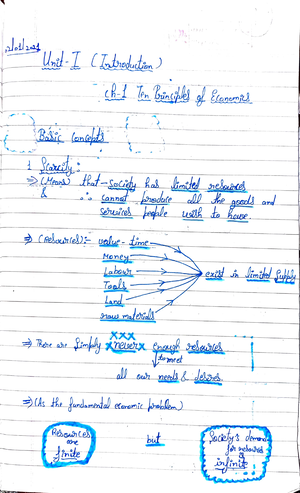 12/02/2021
Unit-I (Introduction)
Ch-1 Ten Principles of Economics
Basic concepts
1. Scarcity:-
⇒ (Means) that society has limited resources
& ∴ cannot produce all the goods and
services people wish to have.
⇒ (Resources):- value-time
Money
Labour
Tools
Land
raw materials
exist in limited supply
xxx
⇒ There are simply x never x enough resources
↓ to meet
all our needs & desires.
⇒ (As the fundamental economic problem)
Resources
are
finite
but
Society's demand
for resources
is
infinite